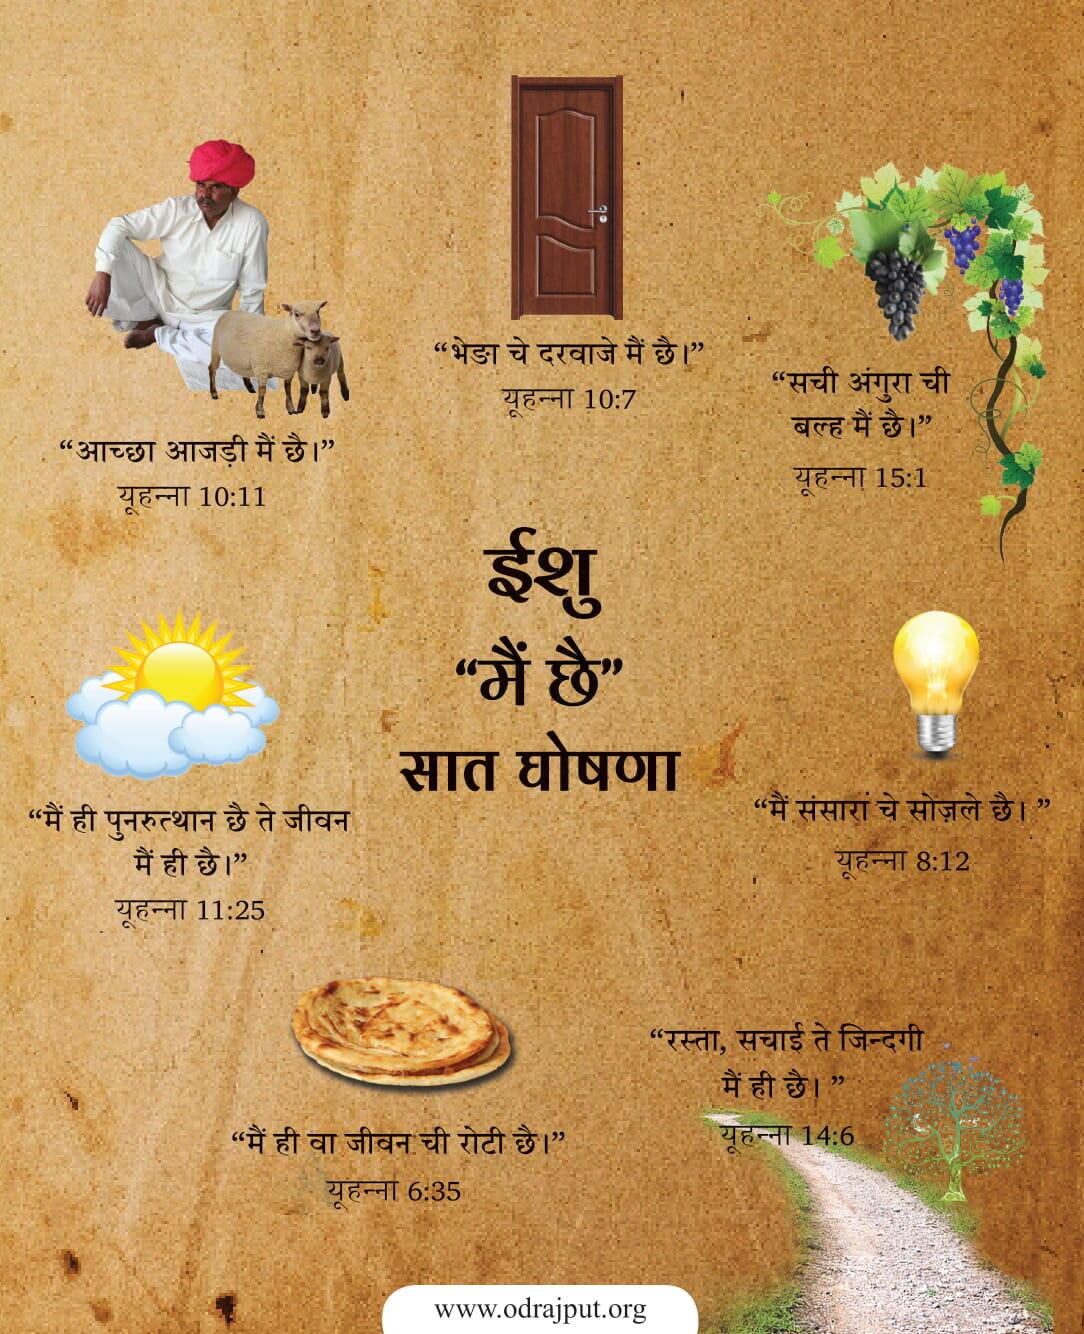 “भेङा चे दरवाजे मैं छै।”
यूहन्ना 10:7
“सची अंगुरा ची
बल्ह मैं छै।”
यूहन्ना 15:1
“आच्छा आजड़ी मैं छै।”
यूहन्ना 10:11
ईशु
“मैं छै”
सात घोषणा
“मैं ही पुनरुत्थान छै ते जीवन
मैं ही छै।”
यूहन्ना 11:25
“मैं संसारां चे सोज़ले छै। ”
यूहन्ना 8:12
“मैं ही वा जीवन ची रोटी छै।”
यूहन्ना 6:35
“रस्ता, सचाई ते जिन्दगी
मैं ही छै। ”
यूहन्ना 14:6
www.odrajput.org